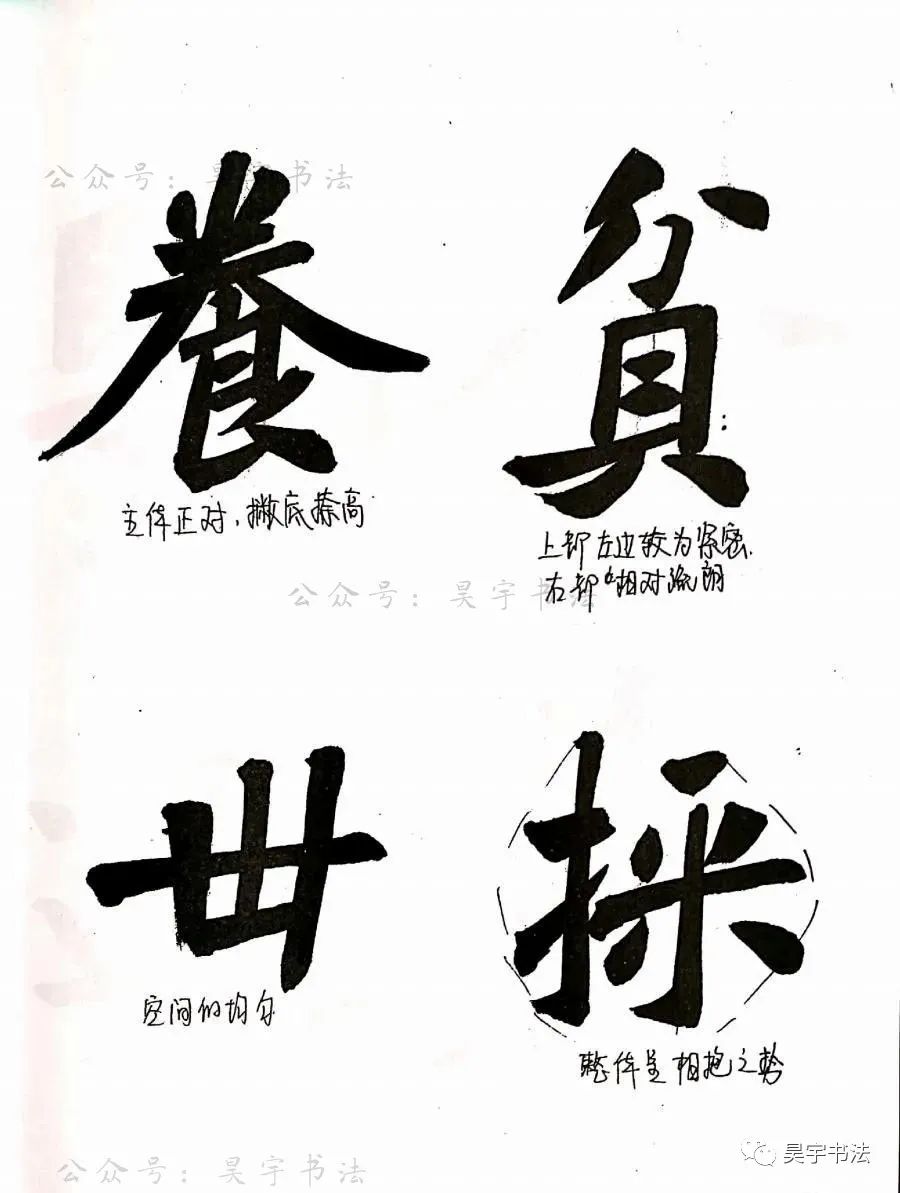 公众号：昊宇书法
養
貧
主体正对，撇底捺高
上部左边较为紧密，
右部相对疏朗
公众号：昊宇书法
丗
採
空间的均匀
整体呈相抱之势
公众号：昊宇书法
昊宇书法